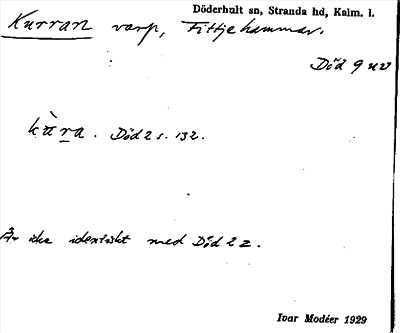 Döderhult sn, Stranda hd, Kalm. l.
Kurran varp, Fittjehammar.
Död 9 uv
kùra. Död 2 s. 132.
Är icke identiskt med Död 22.
Ivar Modéer 1929